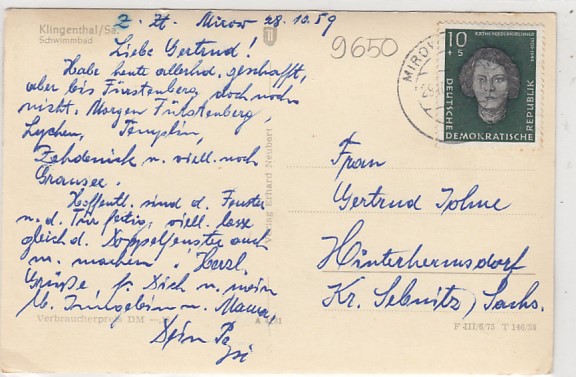 Klingenthal/Sa.
Schwimmbad
Z. Zt. Mirow 28.10.59
Liebe Gertrud!
Habe heute allerhd. geschafft,
aber bis Fürstenberg doch noch
nicht. Morgen Fürstenberg,
Lychen, Templin,
Zehdenick u. viell. noch
Gransee.
Hoffentl. sind d. Fenster
u. d. Tür fertig, viell. lasse
gleich d. Doppelfenster auch
m. machen. Herzl.
Grüße, f. Dich u. mein
lb. u. Mama,
Dein
Verlag Erhard Neubert
Verbraucherpreis DM
9650
MIROW
10
+5
DEUTSCHE
DEMOKRATISCHE
REPUBLIK
Frau
Gertrud
Hinterhermsdorf
Kr. Sebnitz/Sachs.
F III/6/75 T 146/58